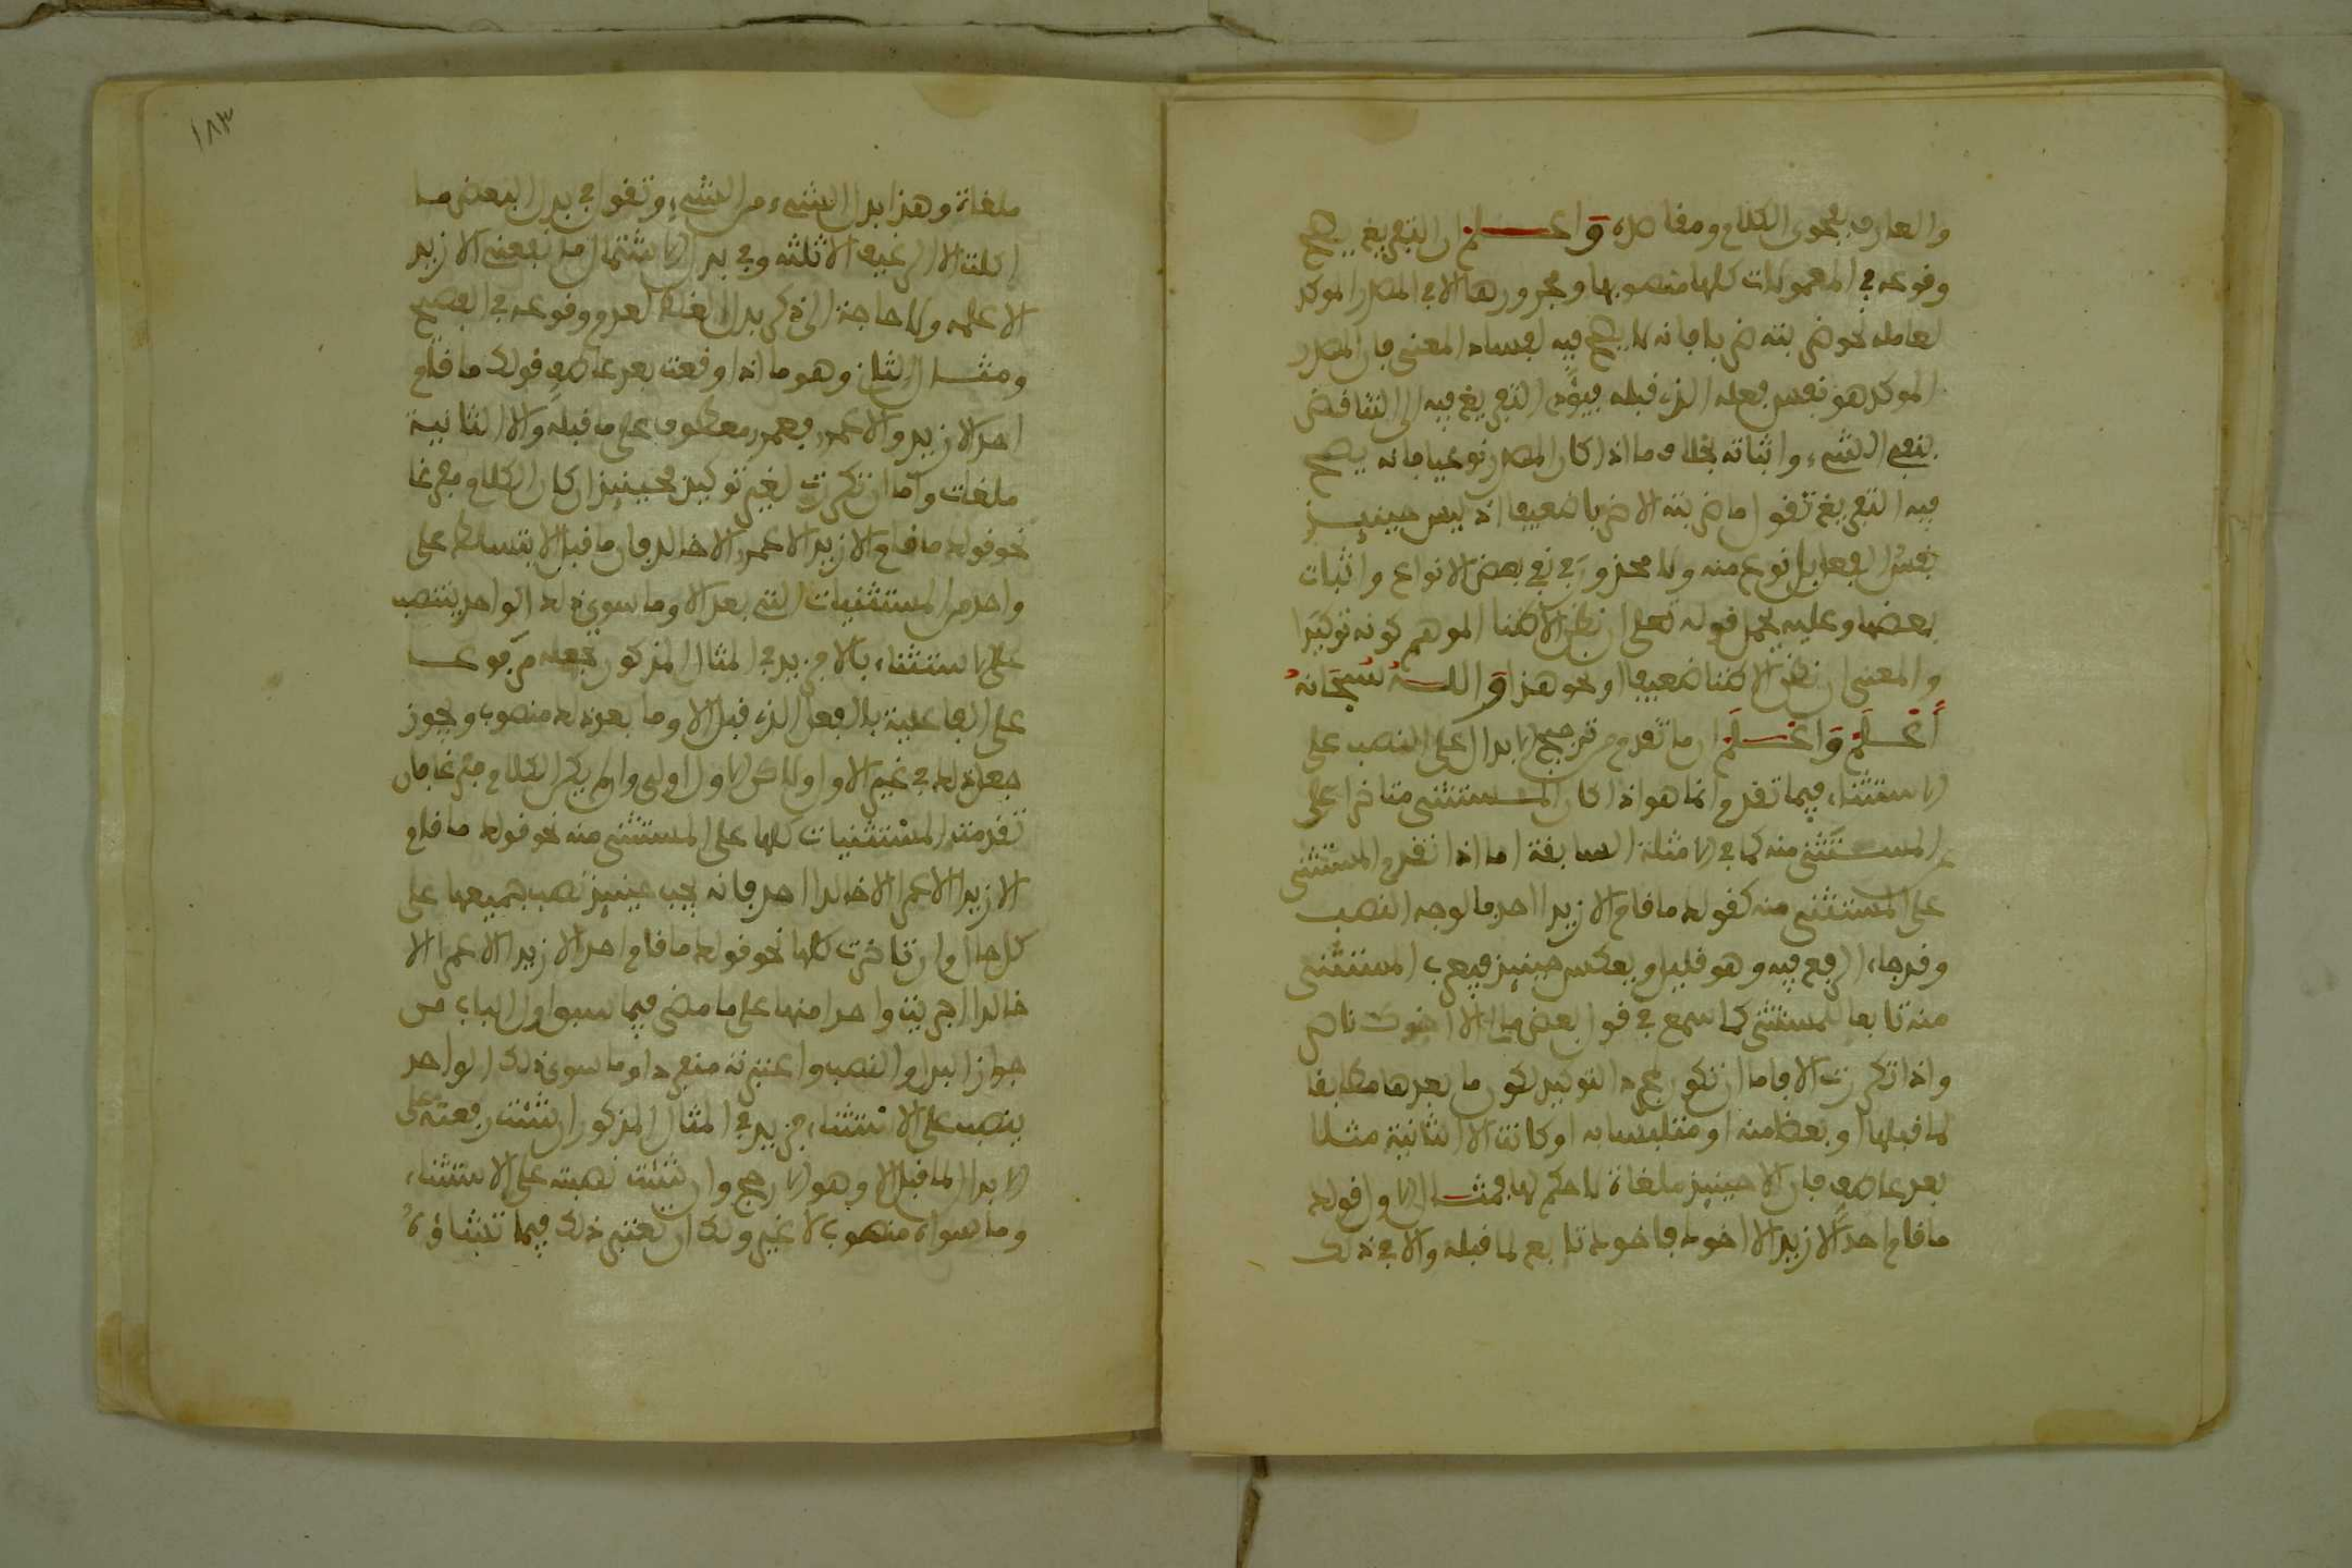 والعارف بفحوى الكلام ومقاصده واعلم ان التفريغ يصح
وقوعه في المعمولات كلها منصوبها ومجرورها الا في المصدر الموكد
لعامله نحو ضربته ضربا فانه لا يصح فيه لفساد المعنى فان المصدر
الموكد هو نفس فعله الذي قبله فيؤدي التفريغ فيه الى التناقض
بنفي الشيء واثباته بخلاف ما اذا كان المصدر نوعيا فانه يصح
فيه التفريغ تقول ما ضربته الا ضربا ضعيفا اذ ليس حينيذ
نفس الفعل بل نوع منه ولا محذور في نفي بعض الانواع واثبات
بعضها وعليه يحمل قوله تعلى ان نظن الا ظنا الموهم كونه توكيدا
والمعنى ان نظن الا ظنا ضعيفا او نحو هذا والله سبحانه
أعلم واعلم ان ما تقدم من ترجيح الابدال على النصب على
الاستثناء فيما تقدم انما هو اذا كان المستثنى متاخرا على
عن المستثنى منه كما في الامثلة السابقة اما اذا تقدم المستثنى
على المستثنى منه كقولك ما قام الا زيدا احد فالوجه النصب
وقد جاء الرفع فيه وهو قليل ويعكس حينيذ فيعرب المستثنى
منه تابعا للمستثنى كما سمع في قول بعضهم مالي الا اخوك ناصر
واذا تكررت الا فاما ان تكون لمجرد التوكيد لكون ما بعدها مطابقا
لما قبلها او بعضا منه او متلبسا به او كانت الا الثانية مثلا
بعد عاطف فان الا حينيذ ملغاة لا حكم لها فمثال الاول قولك
ما قام احد الا زيد الا اخوك فاخوك تابع لما قبله والا في ذلك
١٨٣
ملغاة وهذا بدل الشيء من الشيء وتقول في بدل البعض ما
اكلت الا الرغيف الا ثلثه وفي بدل الاشتمال ما نفعني الا زيد
الا علمه ولا حاجة الى ذكر بدل الغلط لعدم وقوعه في الفصيح
ومثال الثاني وهو ما اذا وقعت بعد عاطف قولك ما قام
احد الا زيد والا عمرو فعمرو معطوف على ما قبله والا الثانية
ملغات واما ان تكررت لغير توكيد فحينيذ ان كان الكلام مفرغا
نحو قولك ما قام الا زيد الا عمرو الا خالد فان ما قبل الا يتسلط على
واحد من المستثنيات التي بعد الا وما سوى ذلك الواحد ينتصب
على الاستثناء بالا فزيد في المثال المذكور تجعله مرفوعا
على الفاعلية بالفعل الذي قبل الا وما بعد ذلك منصوب ويجوز
جعل ذلك في غير الاول ولاكن الاول اولى وان لم يكن الكلام مفرغا فان
تقدمت المستثنيات كلها على المستثنى منه نحو قولك ما قام
الا زيدا الا عمرا الا خالدا احد فانه يجب حينيذ نصب جميعها على
كل حال وان تاخرت كلها نحو قولك ما قام احد الا زيد الا عمرا الا
خالدا اجريت واحدا منها على ما مضى فيما سبق اول الباب من
جواز البدل والنصب واعتبرته منفردا وما سوى ذلك الواحد
ينصب على الاستثناء فزيد في المثال المذكور ان شئت رفعته على
الابدال لما قبل الا وهو الارجح وان شئت نصبته على الاستثناء
وما سواه منصوب لا غير ولك ان تعتبر ذلك فيما تشاؤه